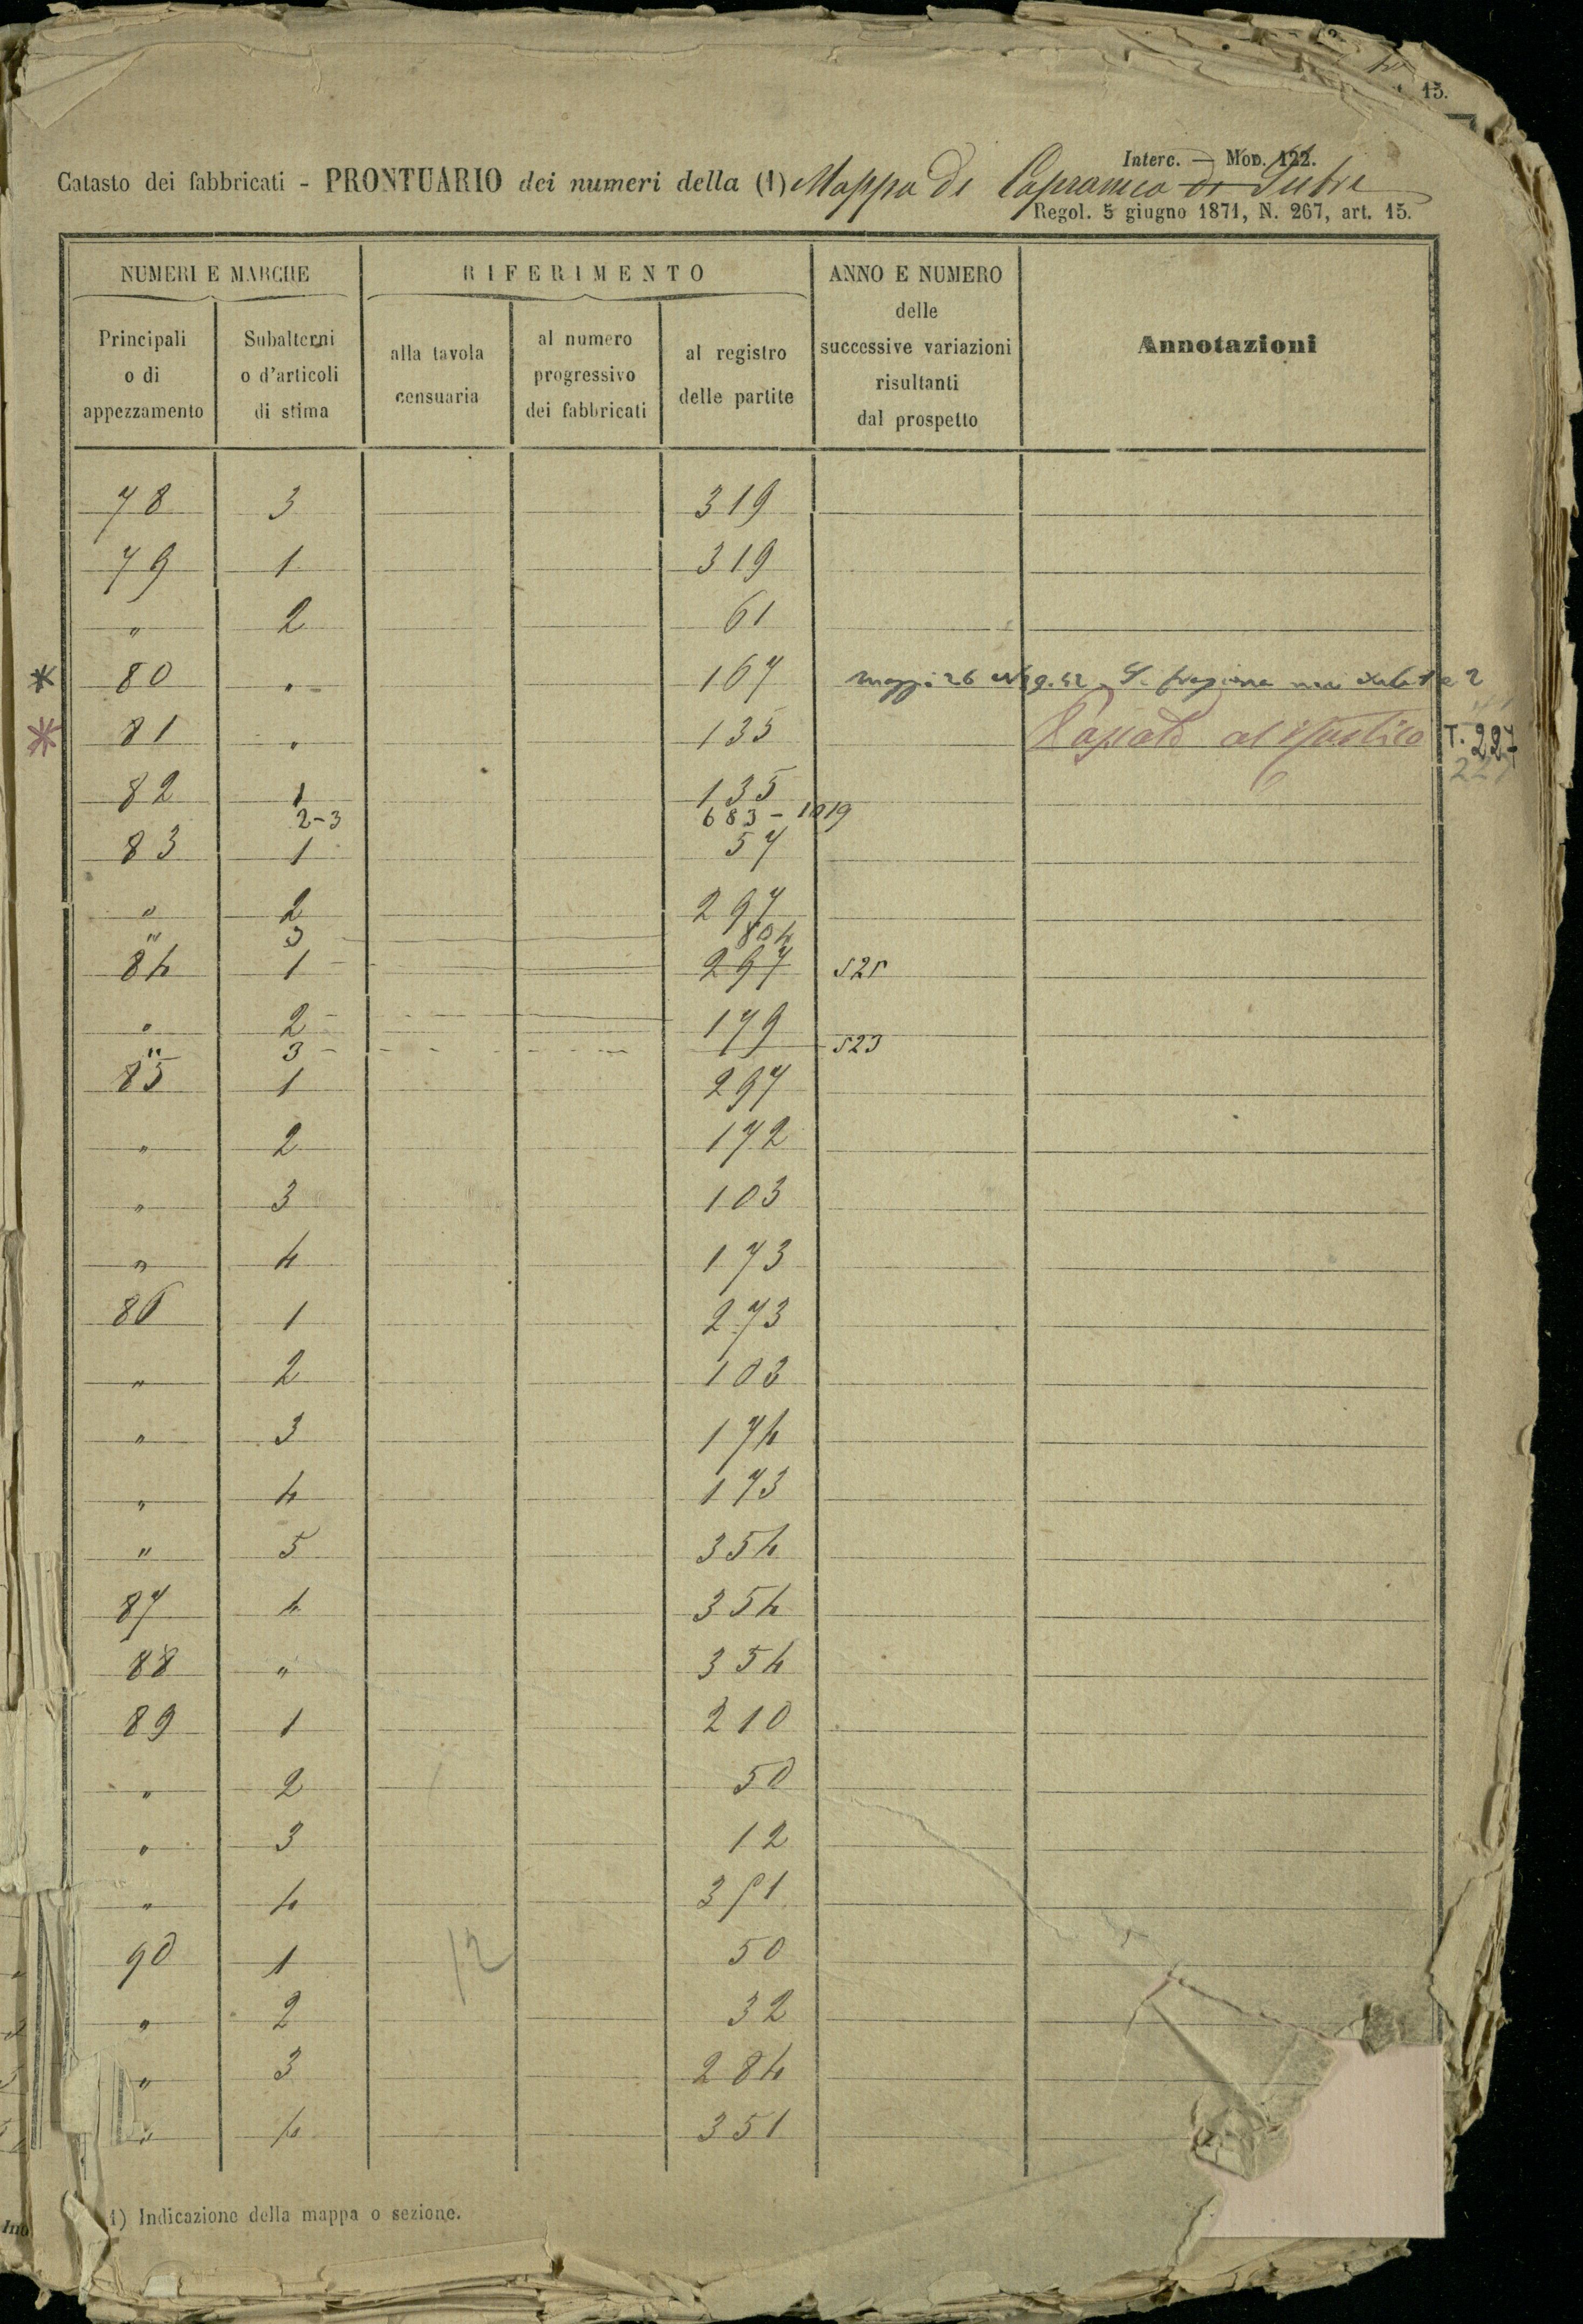 15.
Interc. — Mod. 122.
Catasto dei fabbricati - PRONTUARIO dei numeri della (1) Mappa di Capranica di Sutri
Regol. 5 giugno 1871, N. 267, art. 15.
NUMERI E MARCHE RIFERIMENTO ANNO E NUMERO delle successive variazioni risultanti dal prospetto Annotazioni
Principali o di appezzamento Subalterni o d'articoli di stima alla tavola censuaria al numero progressivo dei fabbricati al registro delle partite
78 3 319
79 1 319
" 2 61
* 80 " 167
* 81 " 135 Passato al rustico T. 227
227
82 1 135
2-3 683 - 1019
83 1 57
" 2 297
" 3 804
84 1 297 525
" 2 179
" 3 523
85 1 297
" 2 172
" 3 103
" 4 173
86 1 273
" 2 103
" 3 174
" 4 173
" 5 354
87 4 354
88 " 354
89 1 210
" 2 50
" 3 12
" 4 351
90 1 12 50
" 2 32
" 3 284
" 4 351
1) Indicazione della mappa o sezione.